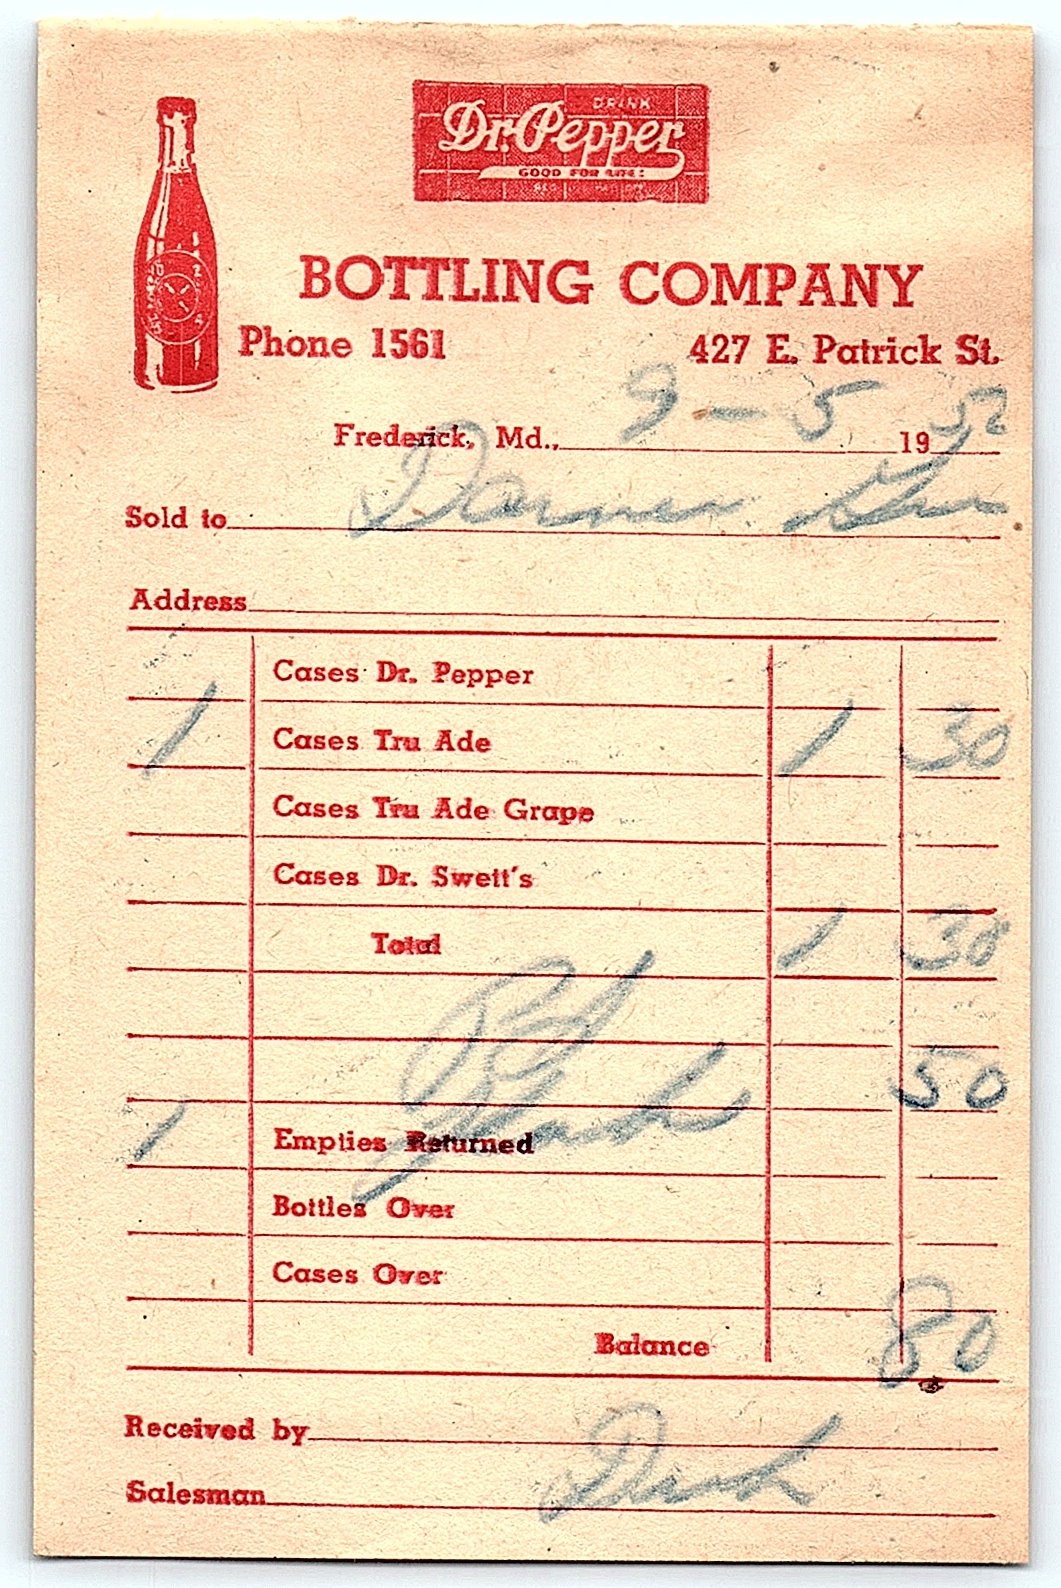 DRINK
Dr. Pepper
GOOD FOR LIFE!
BOTTLING COMPANY
Phone 1561 427 E. Patrick St.
Frederick, Md., 9-5 1952
Sold to
Address
Cases Dr. Pepper
1 Cases Tru Ade 1 30
Cases Tru Ade Grape
Cases Dr. Swett's
Total 1 30
50
1 Empties Returned
Bottles Over
Cases Over
Balance 80
Received by
Salesman